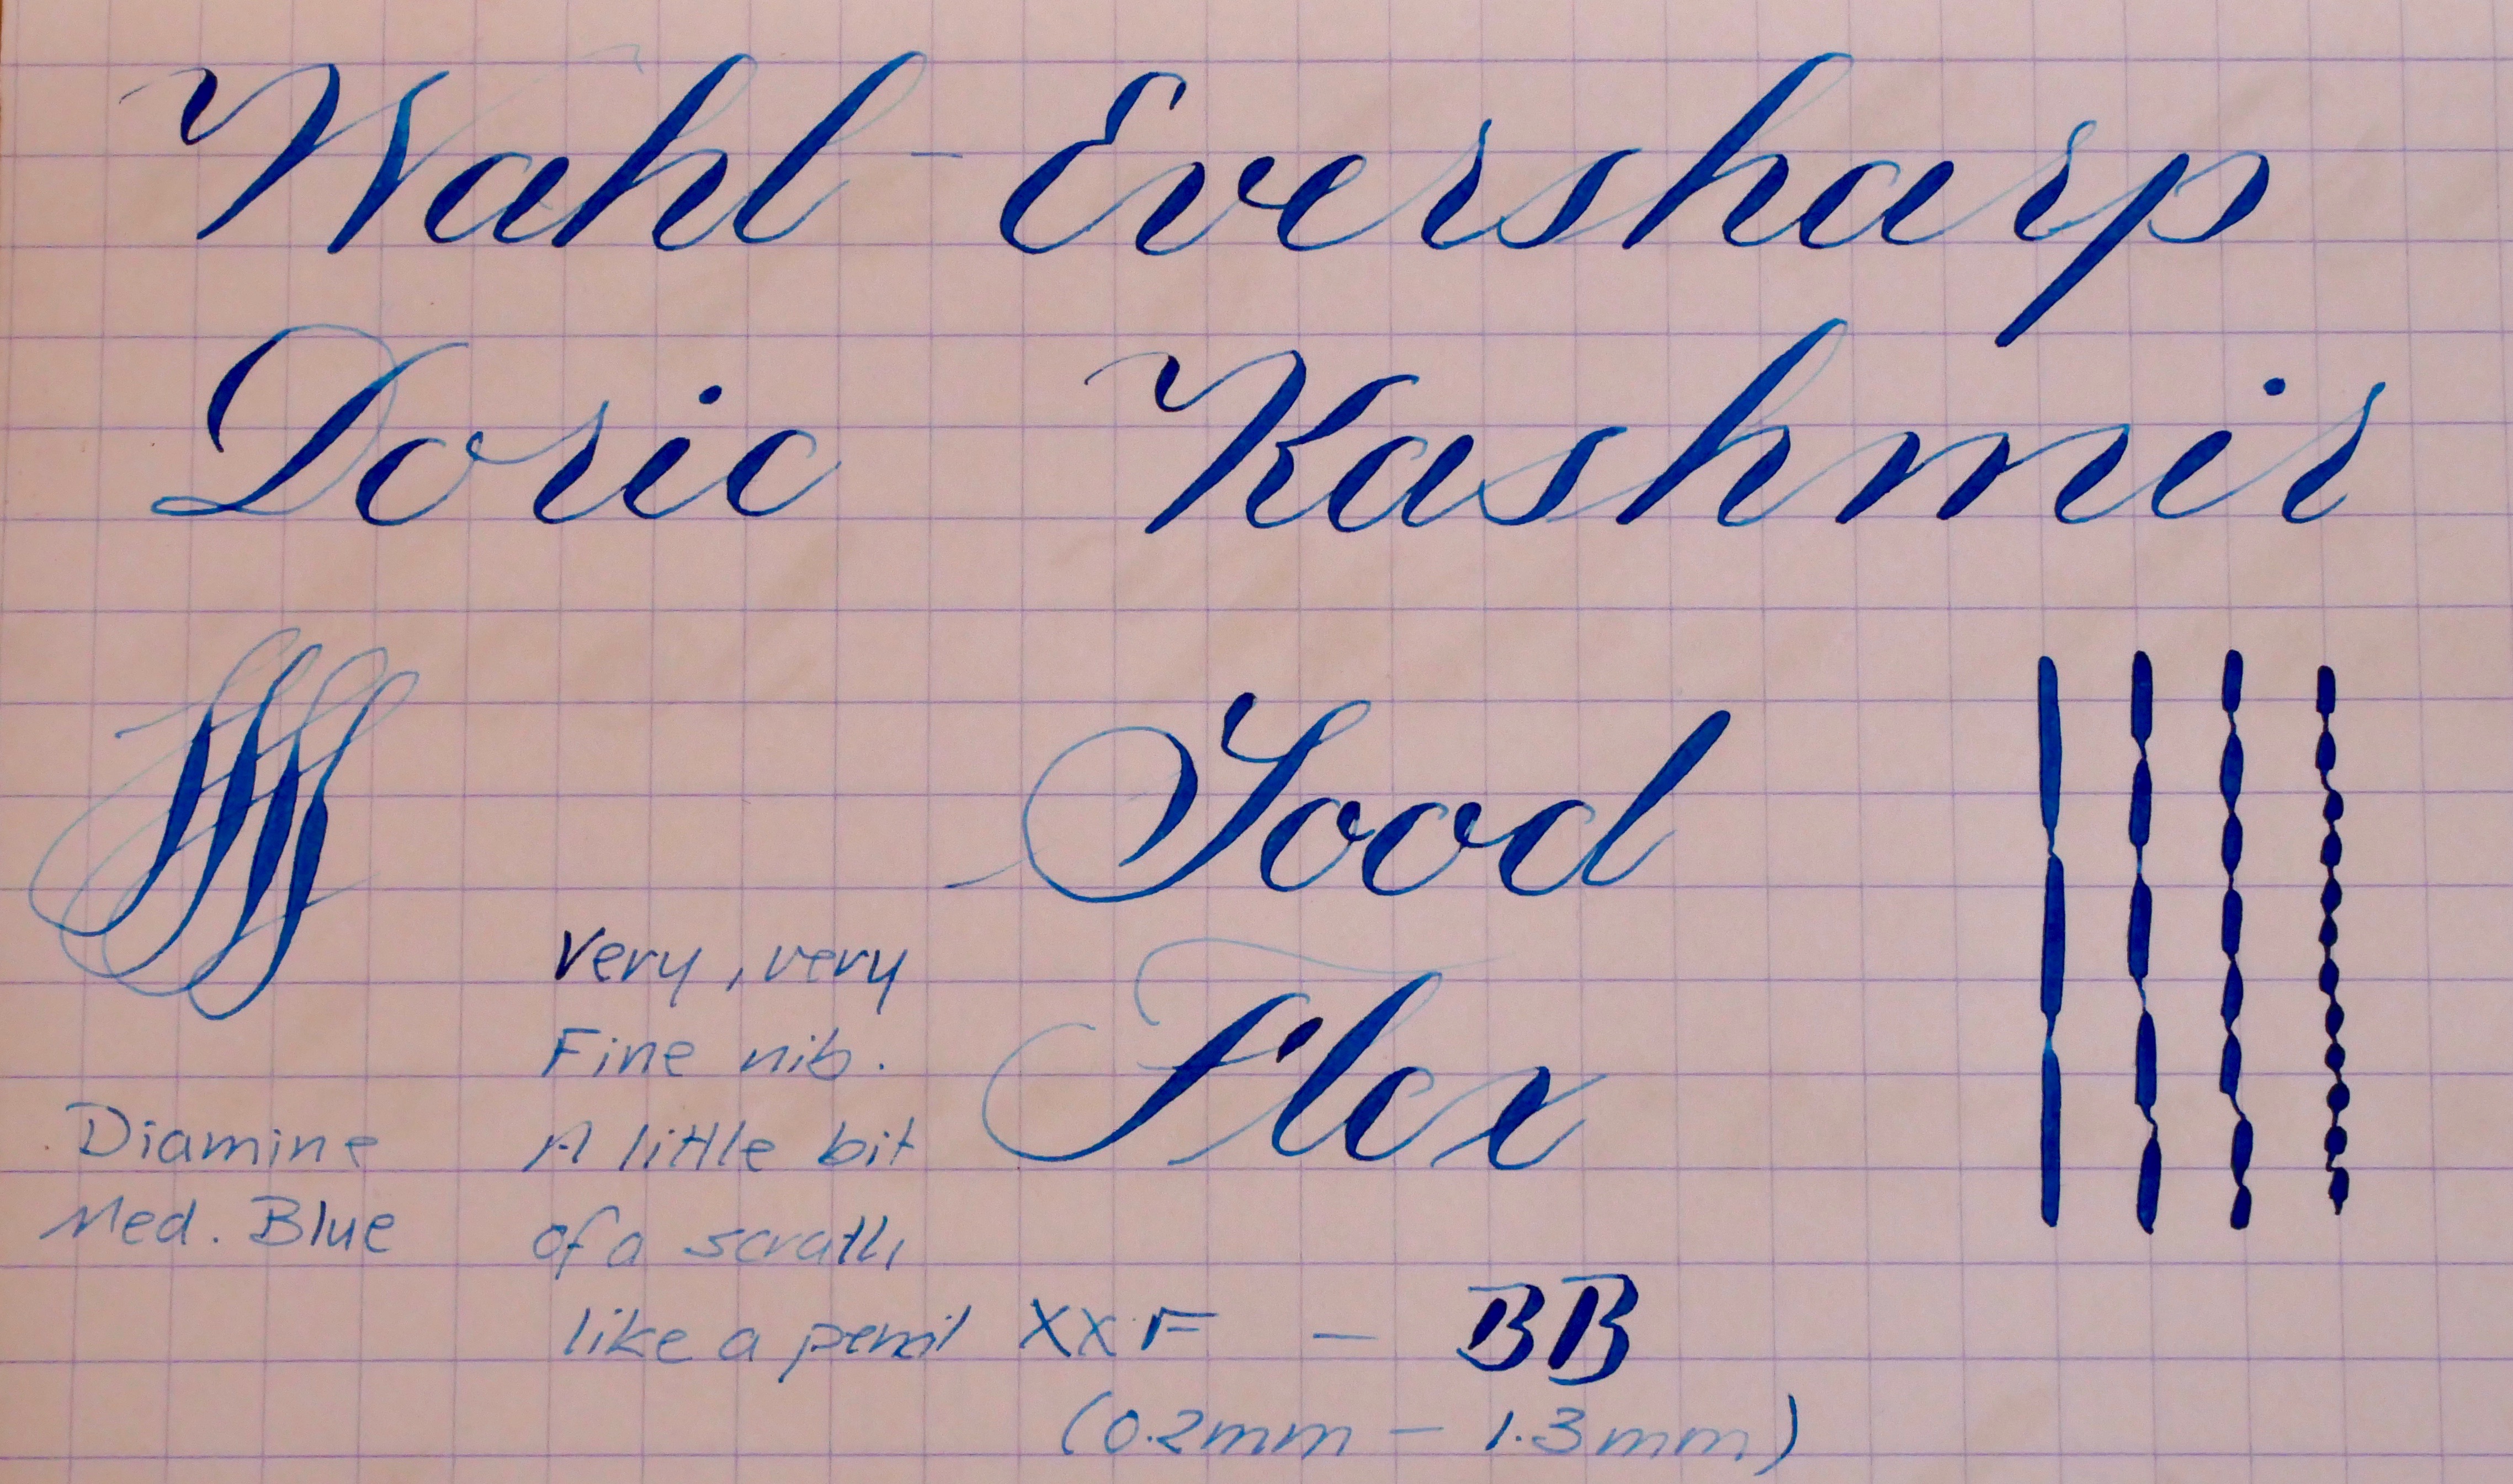 Wahl - Eversharp
Doric Kashmir
Good
Flex
Very, very
Fine nib.
A little bit
of a scratch
like a pencil
Diamine
Med. Blue
XXF - BB
(0.2mm - 1.3mm)